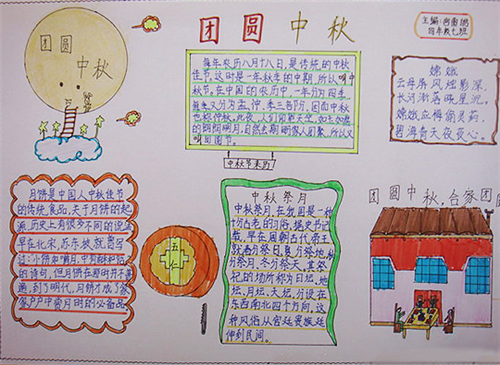 团圆中秋
主编:
四年级七班
团圆
中秋
每年农历八月十八日,是传统的中秋
佳节。这时是一年秋季的中期,所以叫中
秋节。在中国的农历中,一年分为四季,
每季又分为孟、仲、季三部分,因而中秋
也称仲秋。此夜,人们仰望天空如玉如盘
的朗朗明月,自然会期盼家人团聚,所以又
叫团圆节。
中秋节来历
嫦娥
云母屏风烛影深,
长河渐落晓星沉。
嫦娥应悔偷灵药,
碧海青天夜夜心。
月饼是中国人中秋佳节
的传统食品,关于月饼的起
源,历史上有很多不同的说法
早在北宋,苏东坡就曾写
过:小饼如嚼月,中有酥和饴
的诗句,但月饼在那时并不普
遍,到了明代,月饼才成了家
家户户中秋月时的必备品。
五仁
中秋祭月
中秋祭月,在我国是一种
十分古老的习俗。据史书记
载,早在周朝古代帝王
就春分祭日、夏分祭地、秋
分祭月、冬分祭天。其祭
祀的场所称为日坛、地
坛、月坛、天坛。分设在
东西南北四个方向。这
种风俗从宫廷贵族延
伸到民间。
团圆中秋,合家团圆